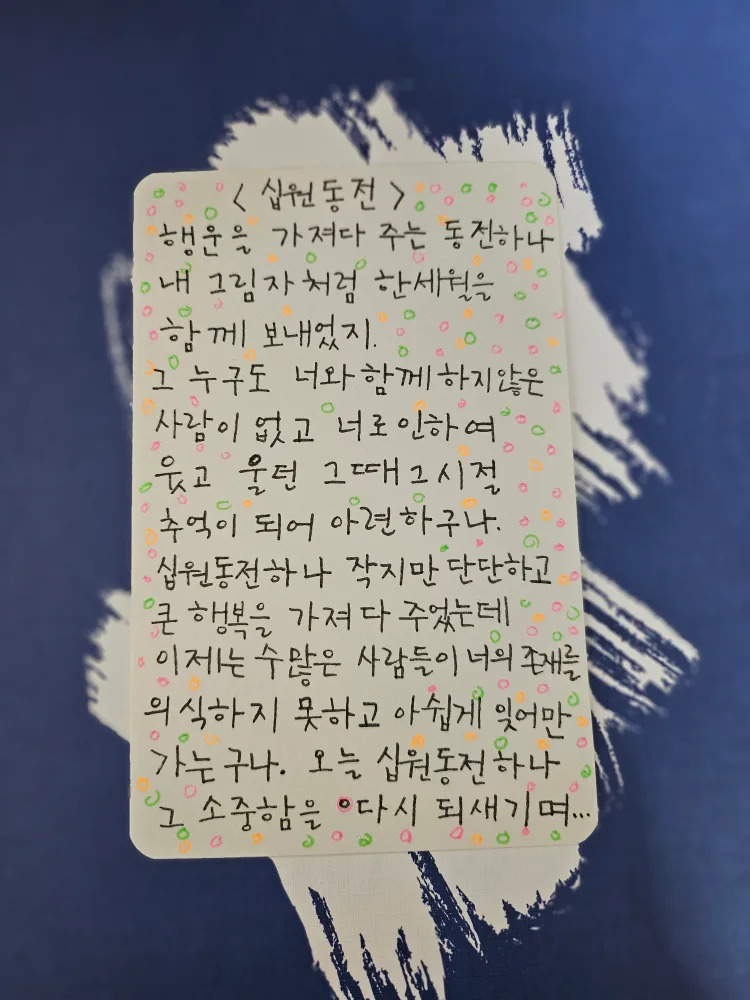 < 십원동전 >
행운을 가져다 주는 동전하나
내 그림자처럼 한세월을
함께 보내었지.
그 누구도 너와 함께하지않은
사람이 없고 너로인하여
웃고 울던 그때그시절
추억이 되어 아련하구나.
십원동전하나 작지만 단단하고
큰 행복을 가져다 주었는데
이제는 수많은 사람들이 너의 존재를
의식하지 못하고 아쉽게 잊어만
가는구나. 오늘 십원동전하나
그 소중함을 다시 되새기며...